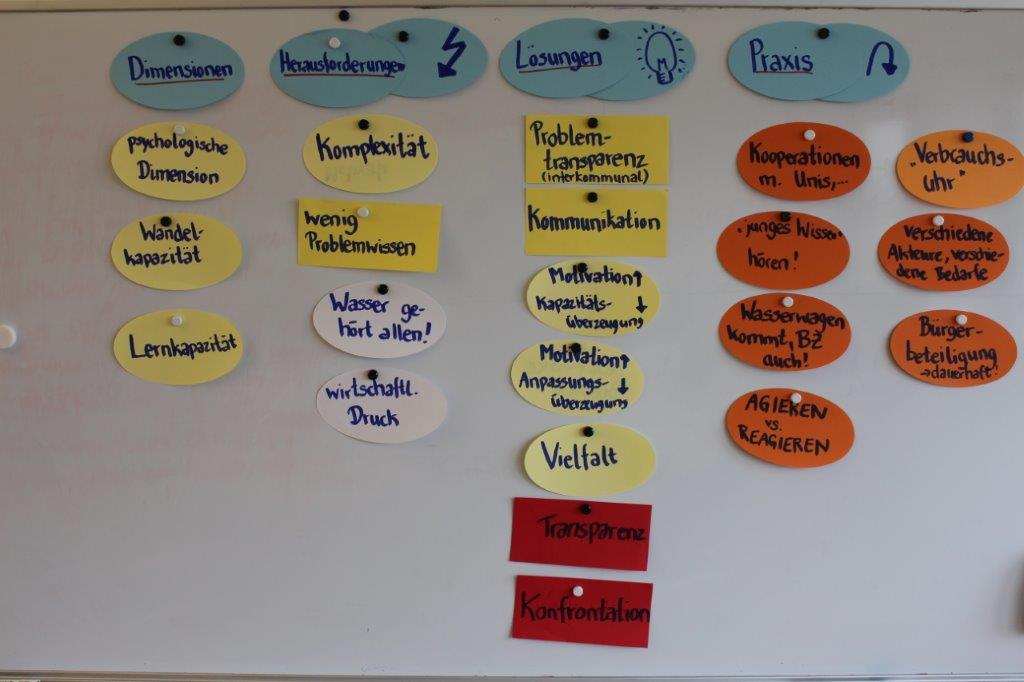 Dimensionen
psychologische
Dimension
Wandel-
kapazität
Lernkapazität
Herausforderungen
Komplexität
wenig
Problemwissen
Wasser ge-
hört allen!
wirtschaftl.
Druck
Lösungen
Problem-
transparenz
(interkommunal)
Kommunikation
Motivation↑
Kapazitäts- ↓
überzeugung
Motivation↑
Anpassungs- ↓
überzeugung
Vielfalt
Transparenz
Konfrontation
Praxis
Kooperationen
m. Unis,...
"junges Wissen"
hören!
Wasserwagen
kommt, BZ
auch!
AGIEREN
vs.
REAGIEREN
"Verbrauchs-
uhr"
verschiedene
Akteure, verschie-
dene Bedarfe
Bürger-
beteiligung
→dauerhaft!